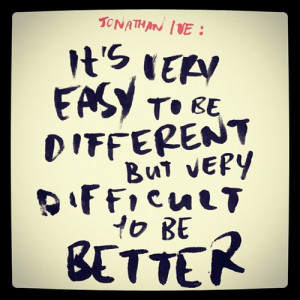 JONATHAN IVE:
IT'S VERY
EASY TO BE
DIFFERENT
BUT VERY
DIFFICULT
TO BE
BETTER